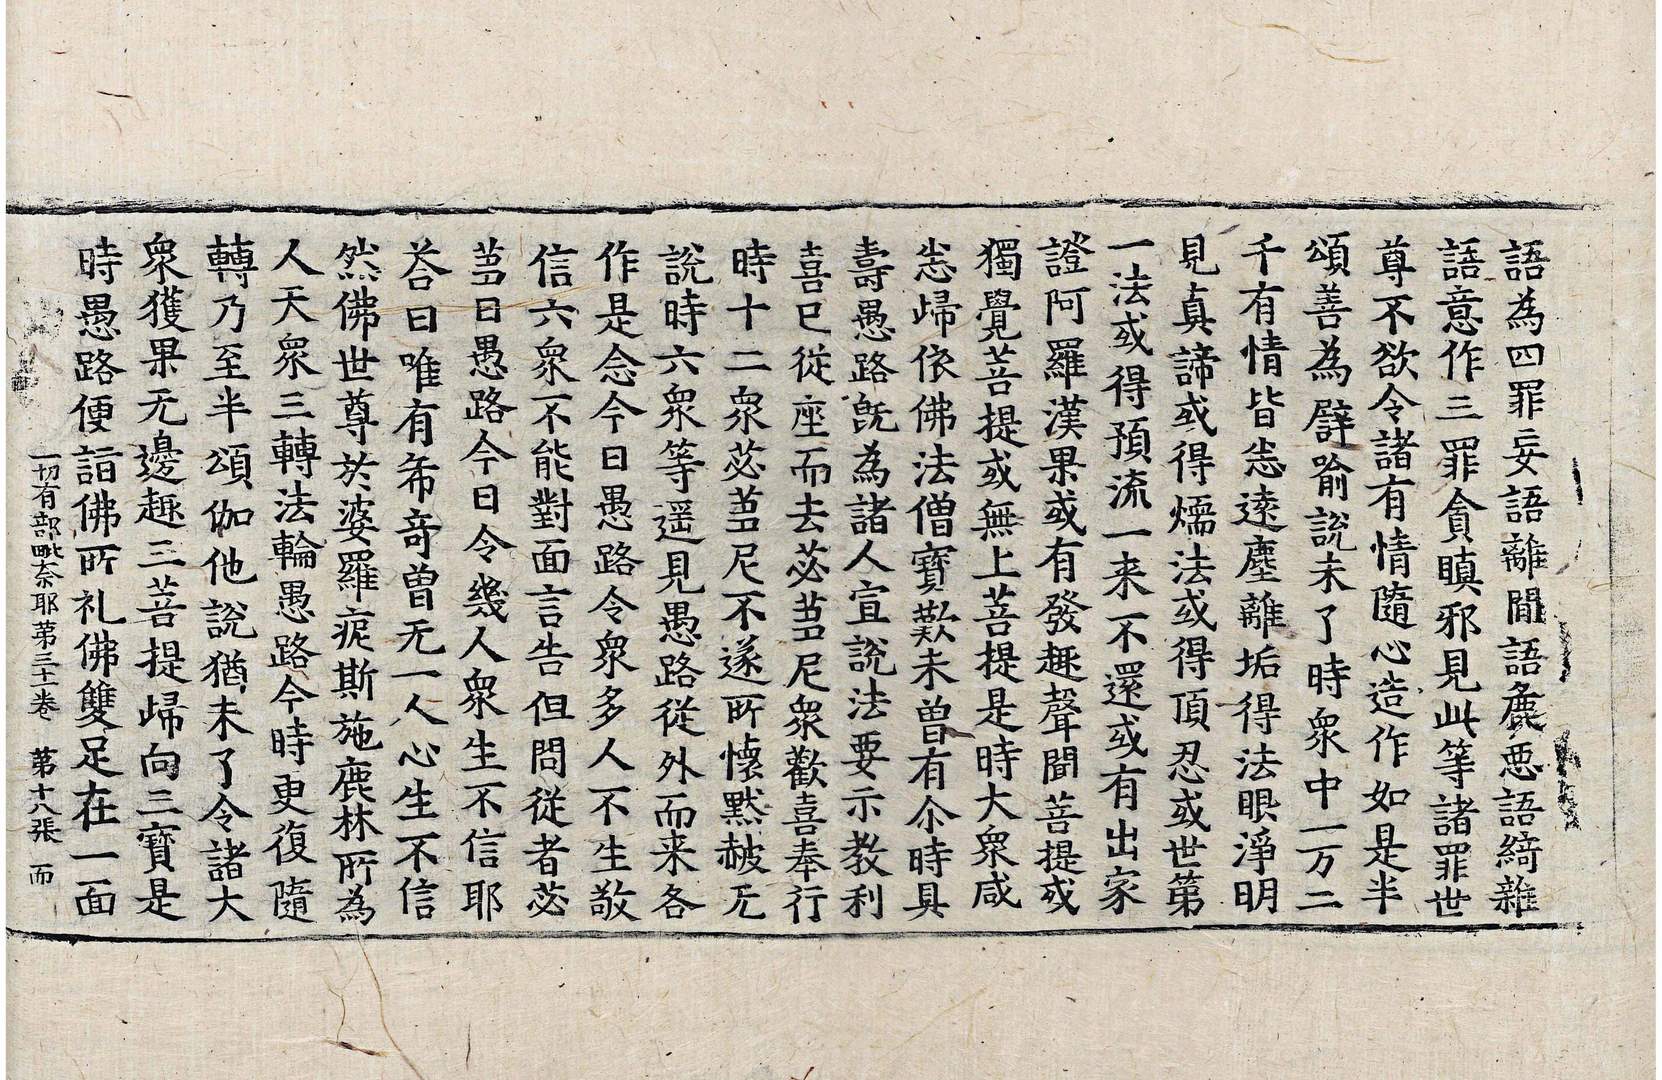 語為四罪妄語離間語麁惡語綺雜
語意作三罪貪瞋邪見此等諸罪世
尊不欲令諸有情隨心造作如是半
頌善為譬喻說未了時眾中一万二
千有情皆悉遠塵離垢得法眼淨明
見真諦或得煗法或得頂忍或世第
一法或得預流一来不還或有出家
證阿羅漢果或有發趣聲聞菩提或
獨覺菩提或無上菩提是時大眾咸
悉歸依佛法僧寶歎未曾有尒時具
壽愚路旣為諸人宣說法要示教利
喜已從座而去苾芻尼眾歡喜奉行
時十二眾苾芻尼不遂所懷默赧无
說時六眾等遥見愚路從外而来各
作是念今日愚路令眾多人不生敬
信六眾不能對面言告但問從者苾
芻曰愚路今日令幾人眾生不信耶
荅曰唯有希奇曾无一人心生不信
然佛世尊於婆羅痆斯施鹿林所為
人天眾三轉法輪愚路今時更復隨
轉乃至半頌伽他說猶未了令諸大
眾獲果无邊趣三菩提歸向三寶是
時愚路便詣佛所礼佛雙足在一面
一切有部毗奈耶第三十一卷 第十八張 而